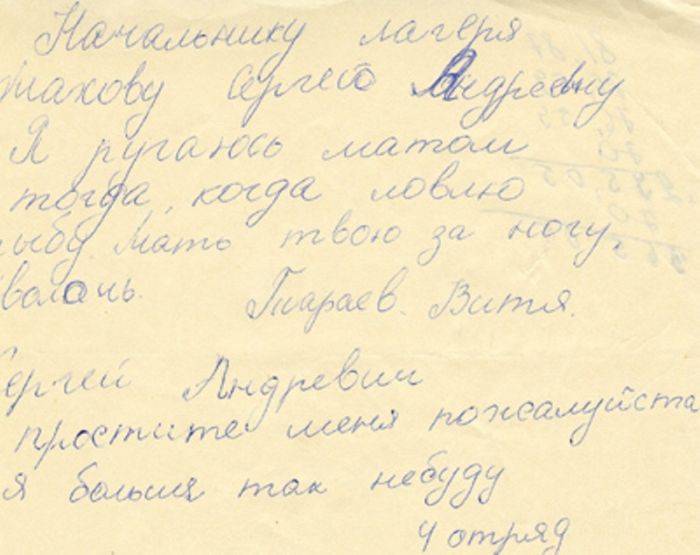 Начальнику лагеря
Сергею Андреевну
Я ругаюсь матом
тогда, когда ловлю
рыбу Мать твою за ногу,
сволочь. Тараев. Витя.
Сергей Андревич
простите меня пожалуйста
я больши так небуду
4 отряд